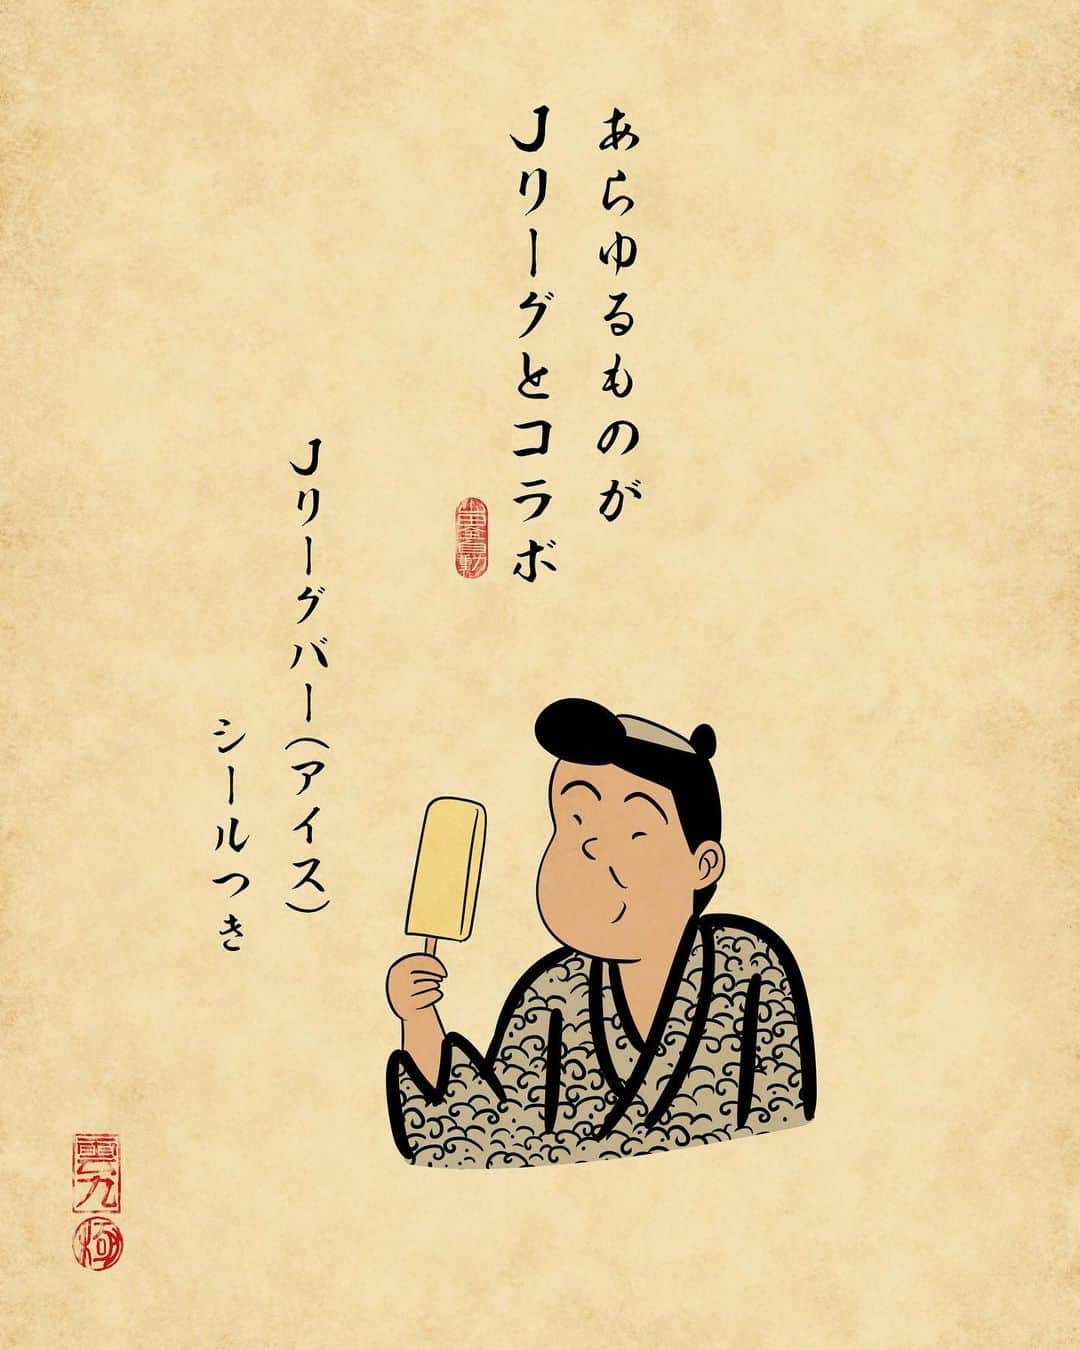 あらゆるものが
Jリーグとコラボ
Jリーグバー(アイス)
シールつき